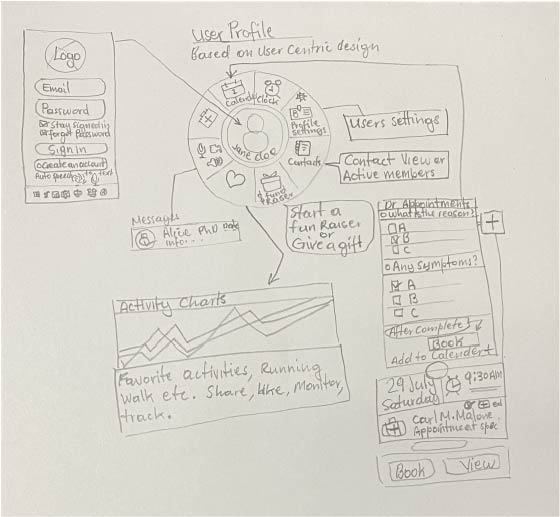 User Profile
Based on User Centric design
Logo
Email
Password
Stay signed in
forgot Password
Sign in
Create an account
Auto speech text
Calender
Clock
Profile
settings
Contacts
fund
Raiser
Jane doe
Users settings
Contact View or
Active members
Start a
fun Raiser
or
Give a gift
Messages
Alice PhD Date
info...
Activity Charts
Favorite activities, Running
walk etc. Share, like, Monitor,
track.
Dr Appointments
o what is the reason?
A
B
C
o Any Symptoms?
A
B
C
After complete!
Book
Add to Calender +
29 July
Saturday
9:30 AM
Carl M. Malove
Appointment spec
Book
View